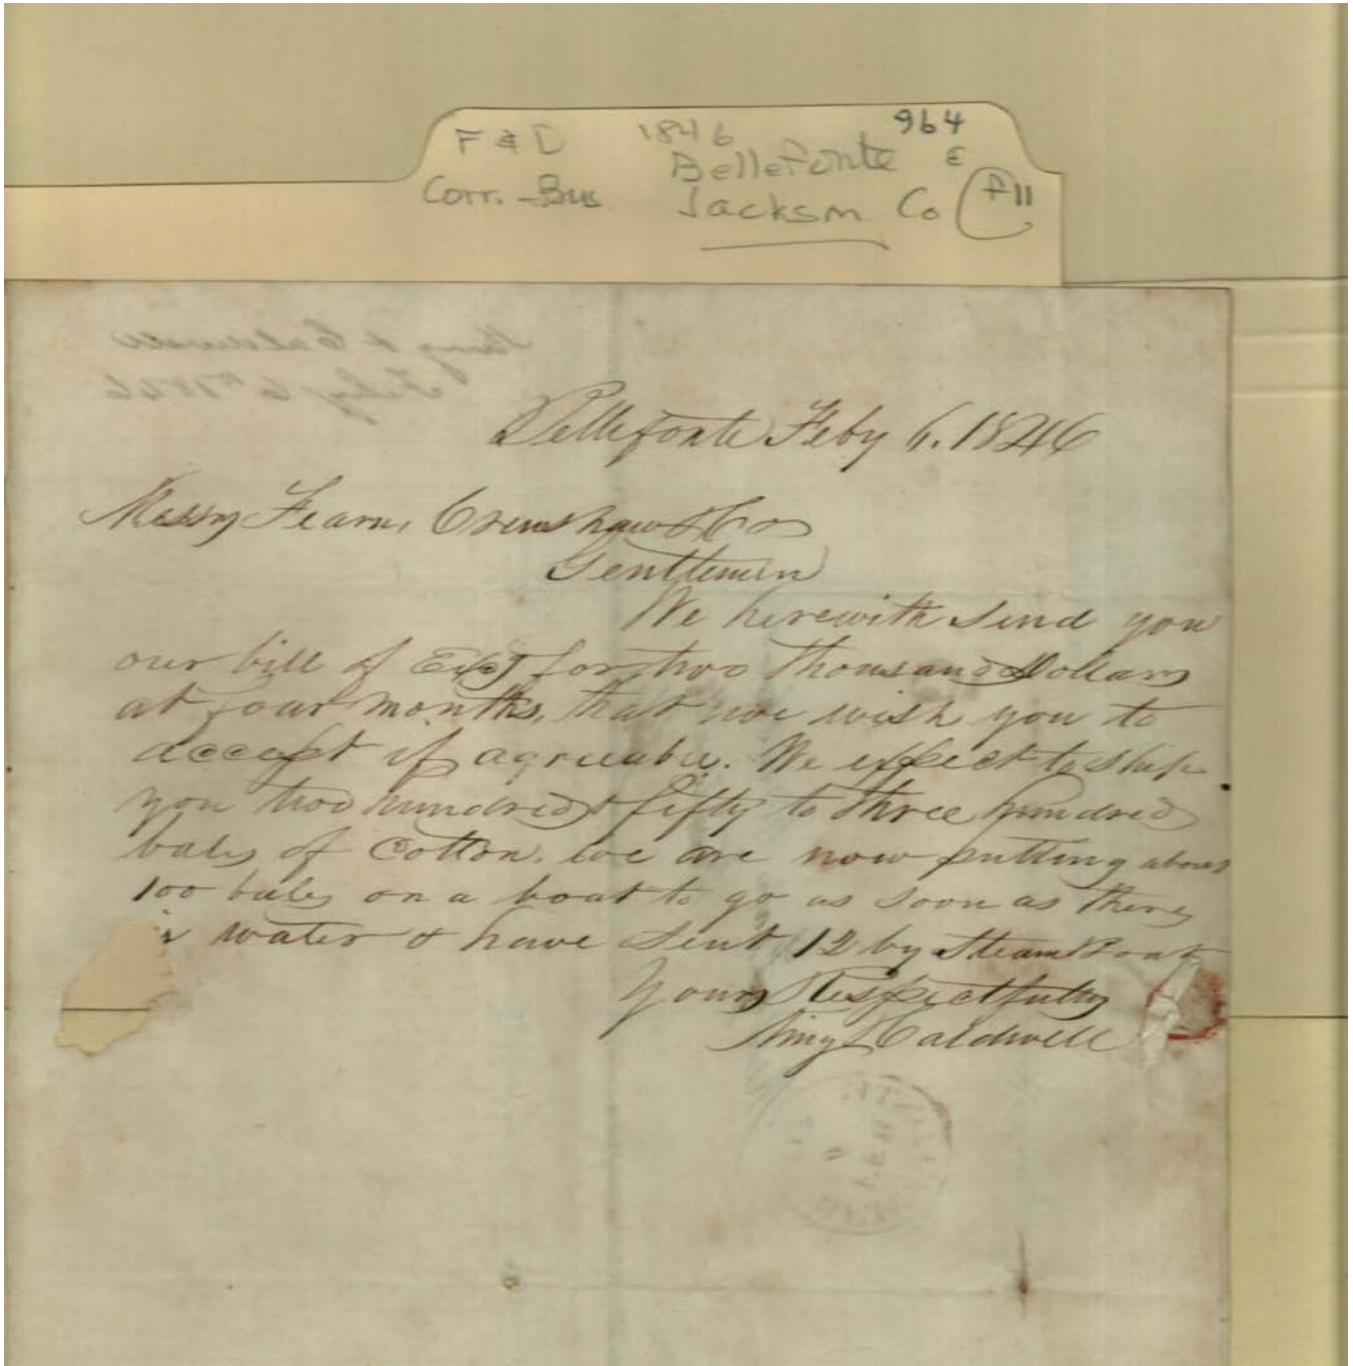 F & D 1846 964
Bellefonte E
Corr. - Bus. Jackson Co F11
King & Caldwell
Feby 6th 1846
Bellefonte Feby 6. 1846
Messrs Fearn, Crenshaw & Co
Gentlemen
We herewith send you
our bill of Exg for two thousand Dollars
at four months, that we wish you to
accept if agreeable. We expect to ship
you two hundred & fifty to three hundred
bales of Cotton. We are now putting about
100 bales on a boat to go as soon as there
is water & have sent 12 by Steam Boat
Yours Respectfully
King & Caldwell